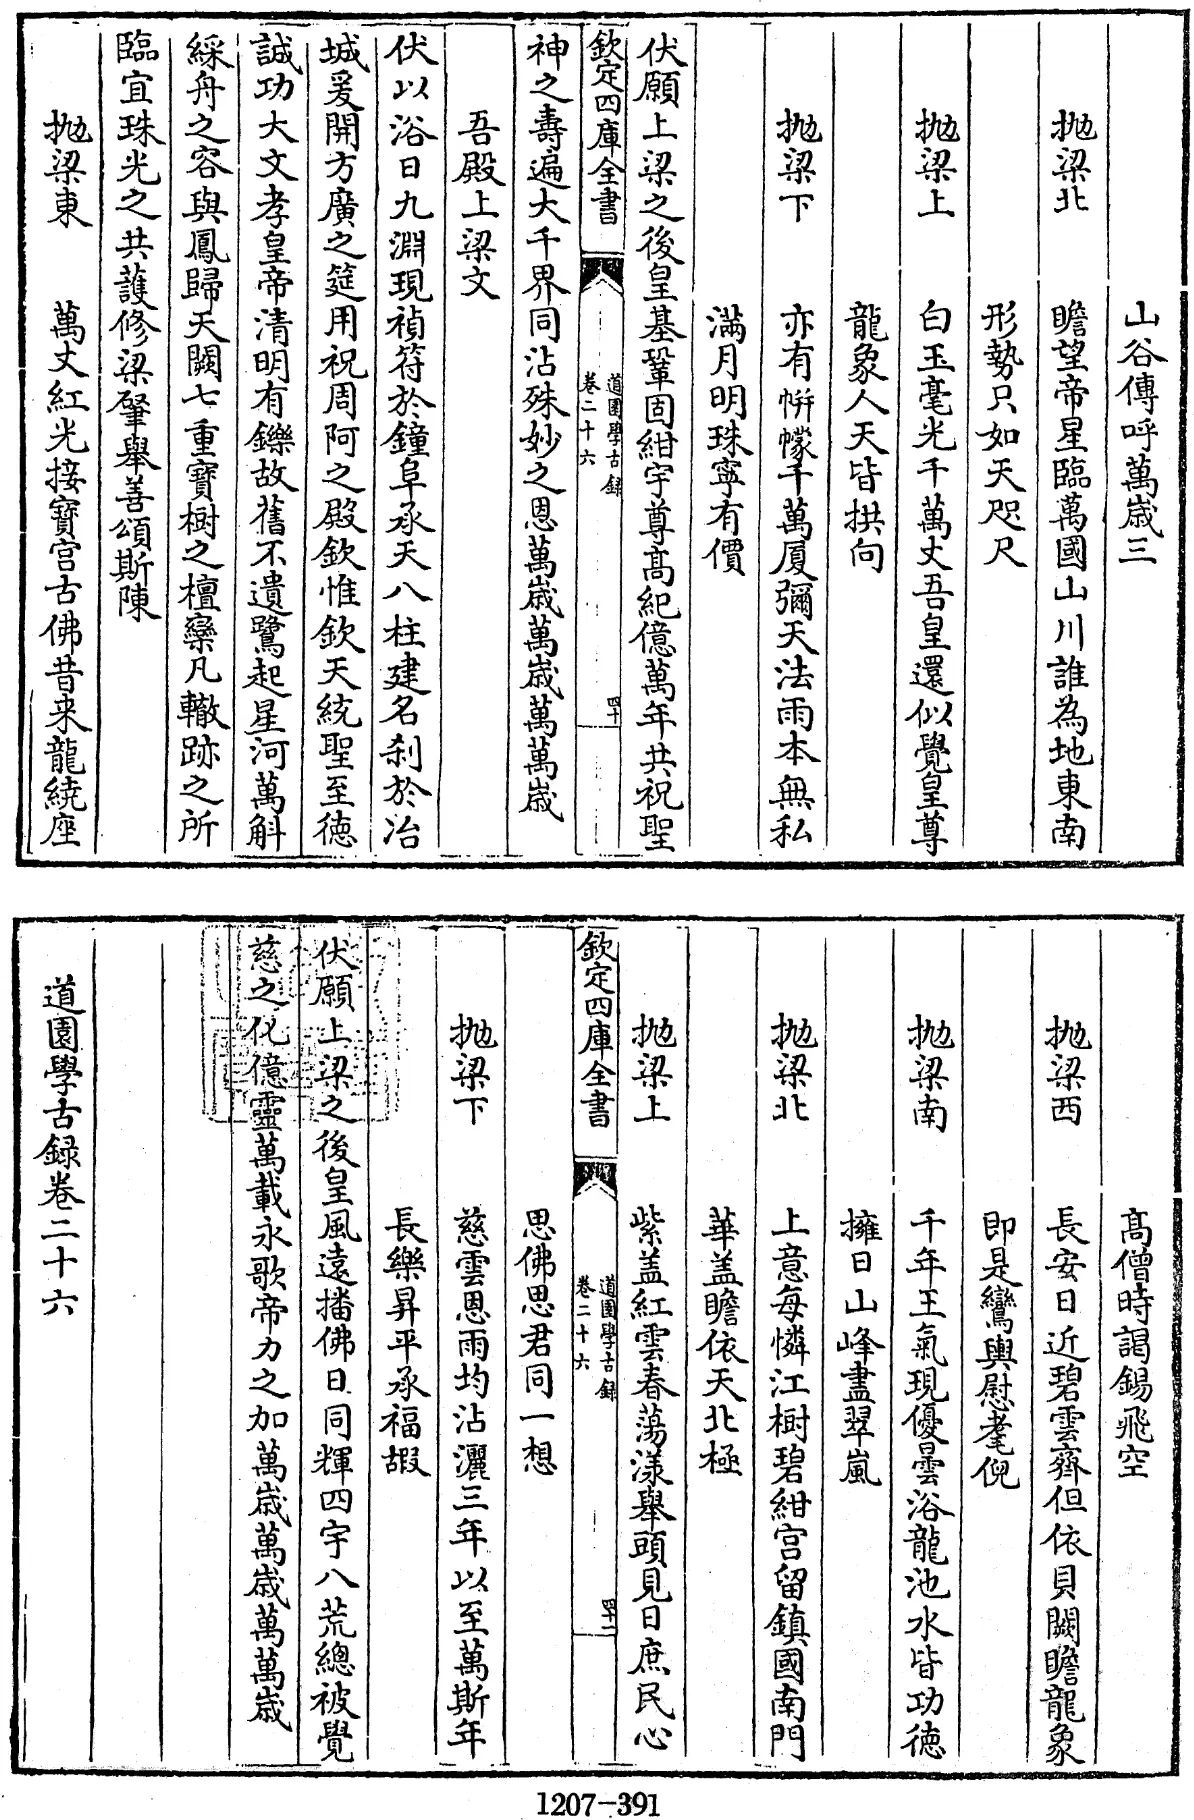 山谷傳呼萬歲三
拋梁北　瞻望帝星臨萬國山川誰為地東南
形勢只如天咫尺
拋梁上　白玉毫光千萬丈吾皇還似覺皇尊
龍象人天皆拱向
拋梁下　亦有帡幪千萬厦彌天法雨本無私
滿月明珠寧有價
伏願上梁之後皇基鞏固紺宇尊高紀億萬年共祝聖
欽定四庫全書
道園學古録
卷二十六
四十
神之壽遍大千界同沾殊妙之恩萬歲萬歲萬萬歲
吾殿上梁文
伏以浴日九淵現禎符於鐘阜承天八柱建名刹於冶
城爰開方廣之筵用祝周阿之殿欽惟欽天統聖至德
誠功大文孝皇帝清明有鑠故舊不遺鷺起星河萬斛
綵舟之容與鳳歸天闕七重寳樹之檀欒凡轍跡之所
臨宜珠光之共護修梁肇舉善頌斯陳
拋梁東　萬丈紅光接寳宫古佛昔来龍繞座
高僧時謁錫飛空
拋梁西　長安日近碧雲齊但依貝闕瞻龍象
即是鸞輿慰耄倪
拋梁南　千年王氣現優曇浴龍池水皆功德
擁日山峰盡翠嵐
拋梁北　上意每憐江樹碧紺宫留鎮國南門
華盖瞻依天北極
拋梁上　紫盖紅雲春蕩漾舉頭見日庶民心
欽定四庫全書
道園學古録
卷二十六
四十一
思佛思君同一想
拋梁下　慈雲恩雨均沾灑三年以至萬斯年
長樂昇平承福嘏
伏願上梁之後皇風遠播佛日同輝四宇八荒總被覺
慈之化億靈萬載永歌帝力之加萬歲萬歲萬萬歲
道園學古録卷二十六
1207-391